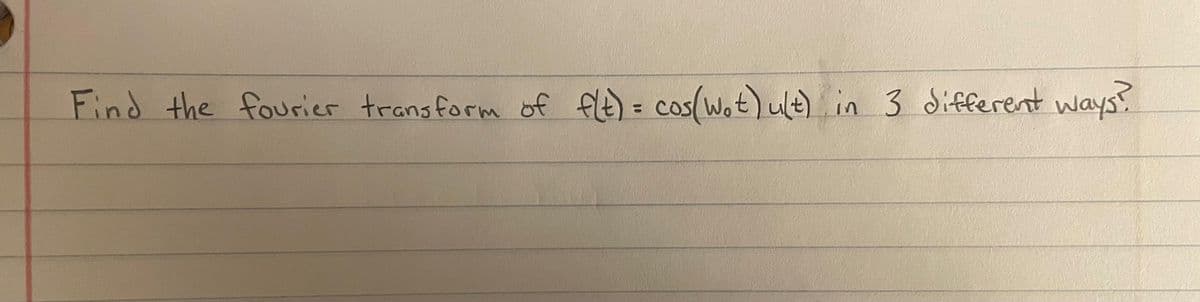 Find the fourier transform of f(t) = cos(W₀t) u(t) in 3 different ways?